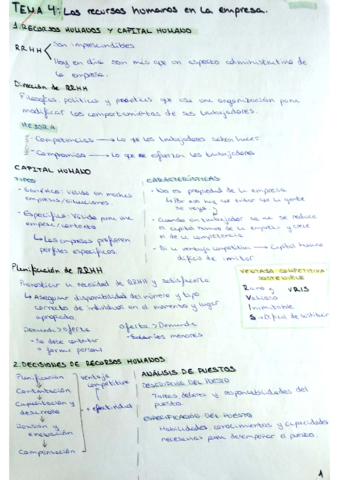 TEMA 4: Los recursos humanos en la empresa.
1. RECURSOS HUMANOS Y CAPITAL HUMANO
RRHH
Son imprescindibles
Hoy en día son más que un aspecto administrativo de
la empresa.
Dirección de RRHH
Filosofía, política y prácticas que usa una organización para
modificar los comportamientos de sus trabajadores.
MEJORA
- Competencias → Lo que los trabajadores saben hacer
- Compromiso → Lo que se esfuerzan los trabajadores
CAPITAL HUMANO
TIPOS
- Genérico: Válido en muchas
empresas/situaciones.
- Específico: Válido para una
empresa/contexto
↳ Las empresas prefieren
perfiles específicos.
CARACTERÍSTICAS
- No es propiedad de la empresa
↳ Por eso hay que evitar que la gente
se vaya
- Cuando un trabajador se va se reduce
el capital humano de la empresa y crece
el de la competencia
- Si la ventaja competitiva → Capital humano
difícil de imitar
Planificación de RRHH
Pronosticar la necesidad de RRHH y satisfacerla
↳ Asegurar disponibilidad del número y tipo
correcto de individuos en el momento y lugar
apropiados.
Demanda > Oferta
- Se debe contratar
+ formar personal
Oferta > Demanda
- Salarios menores
VENTAJA COMPETITIVA
SOSTENIBLE
Raro y VRIS
Valioso
Inimitable
S → Difícil de sustituir
2. DECISIONES DE RECURSOS HUMANOS
Planificación
Contratación
Capacitación y
desarrollo
evaluación
Compensación
Ventaja
competitiva
+ efectividad
ANÁLISIS DE PUESTOS
DESCRIPCIÓN DEL PUESTO
Tareas, deberes y responsabilidades del
puesto.
ESPECIFICACIÓN DEL PUESTO
Habilidades, conocimientos y capacidades
necesarias para desempeñar el puesto.
1